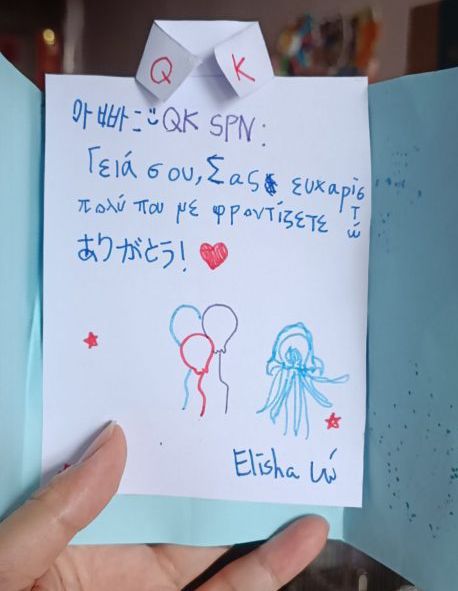 Q K
아빠 QK SPN:
Γειά σου, Σας ευχαρίσ
τ
πολύ που με φροντίζετε ώ
ありがとう!
Elisha